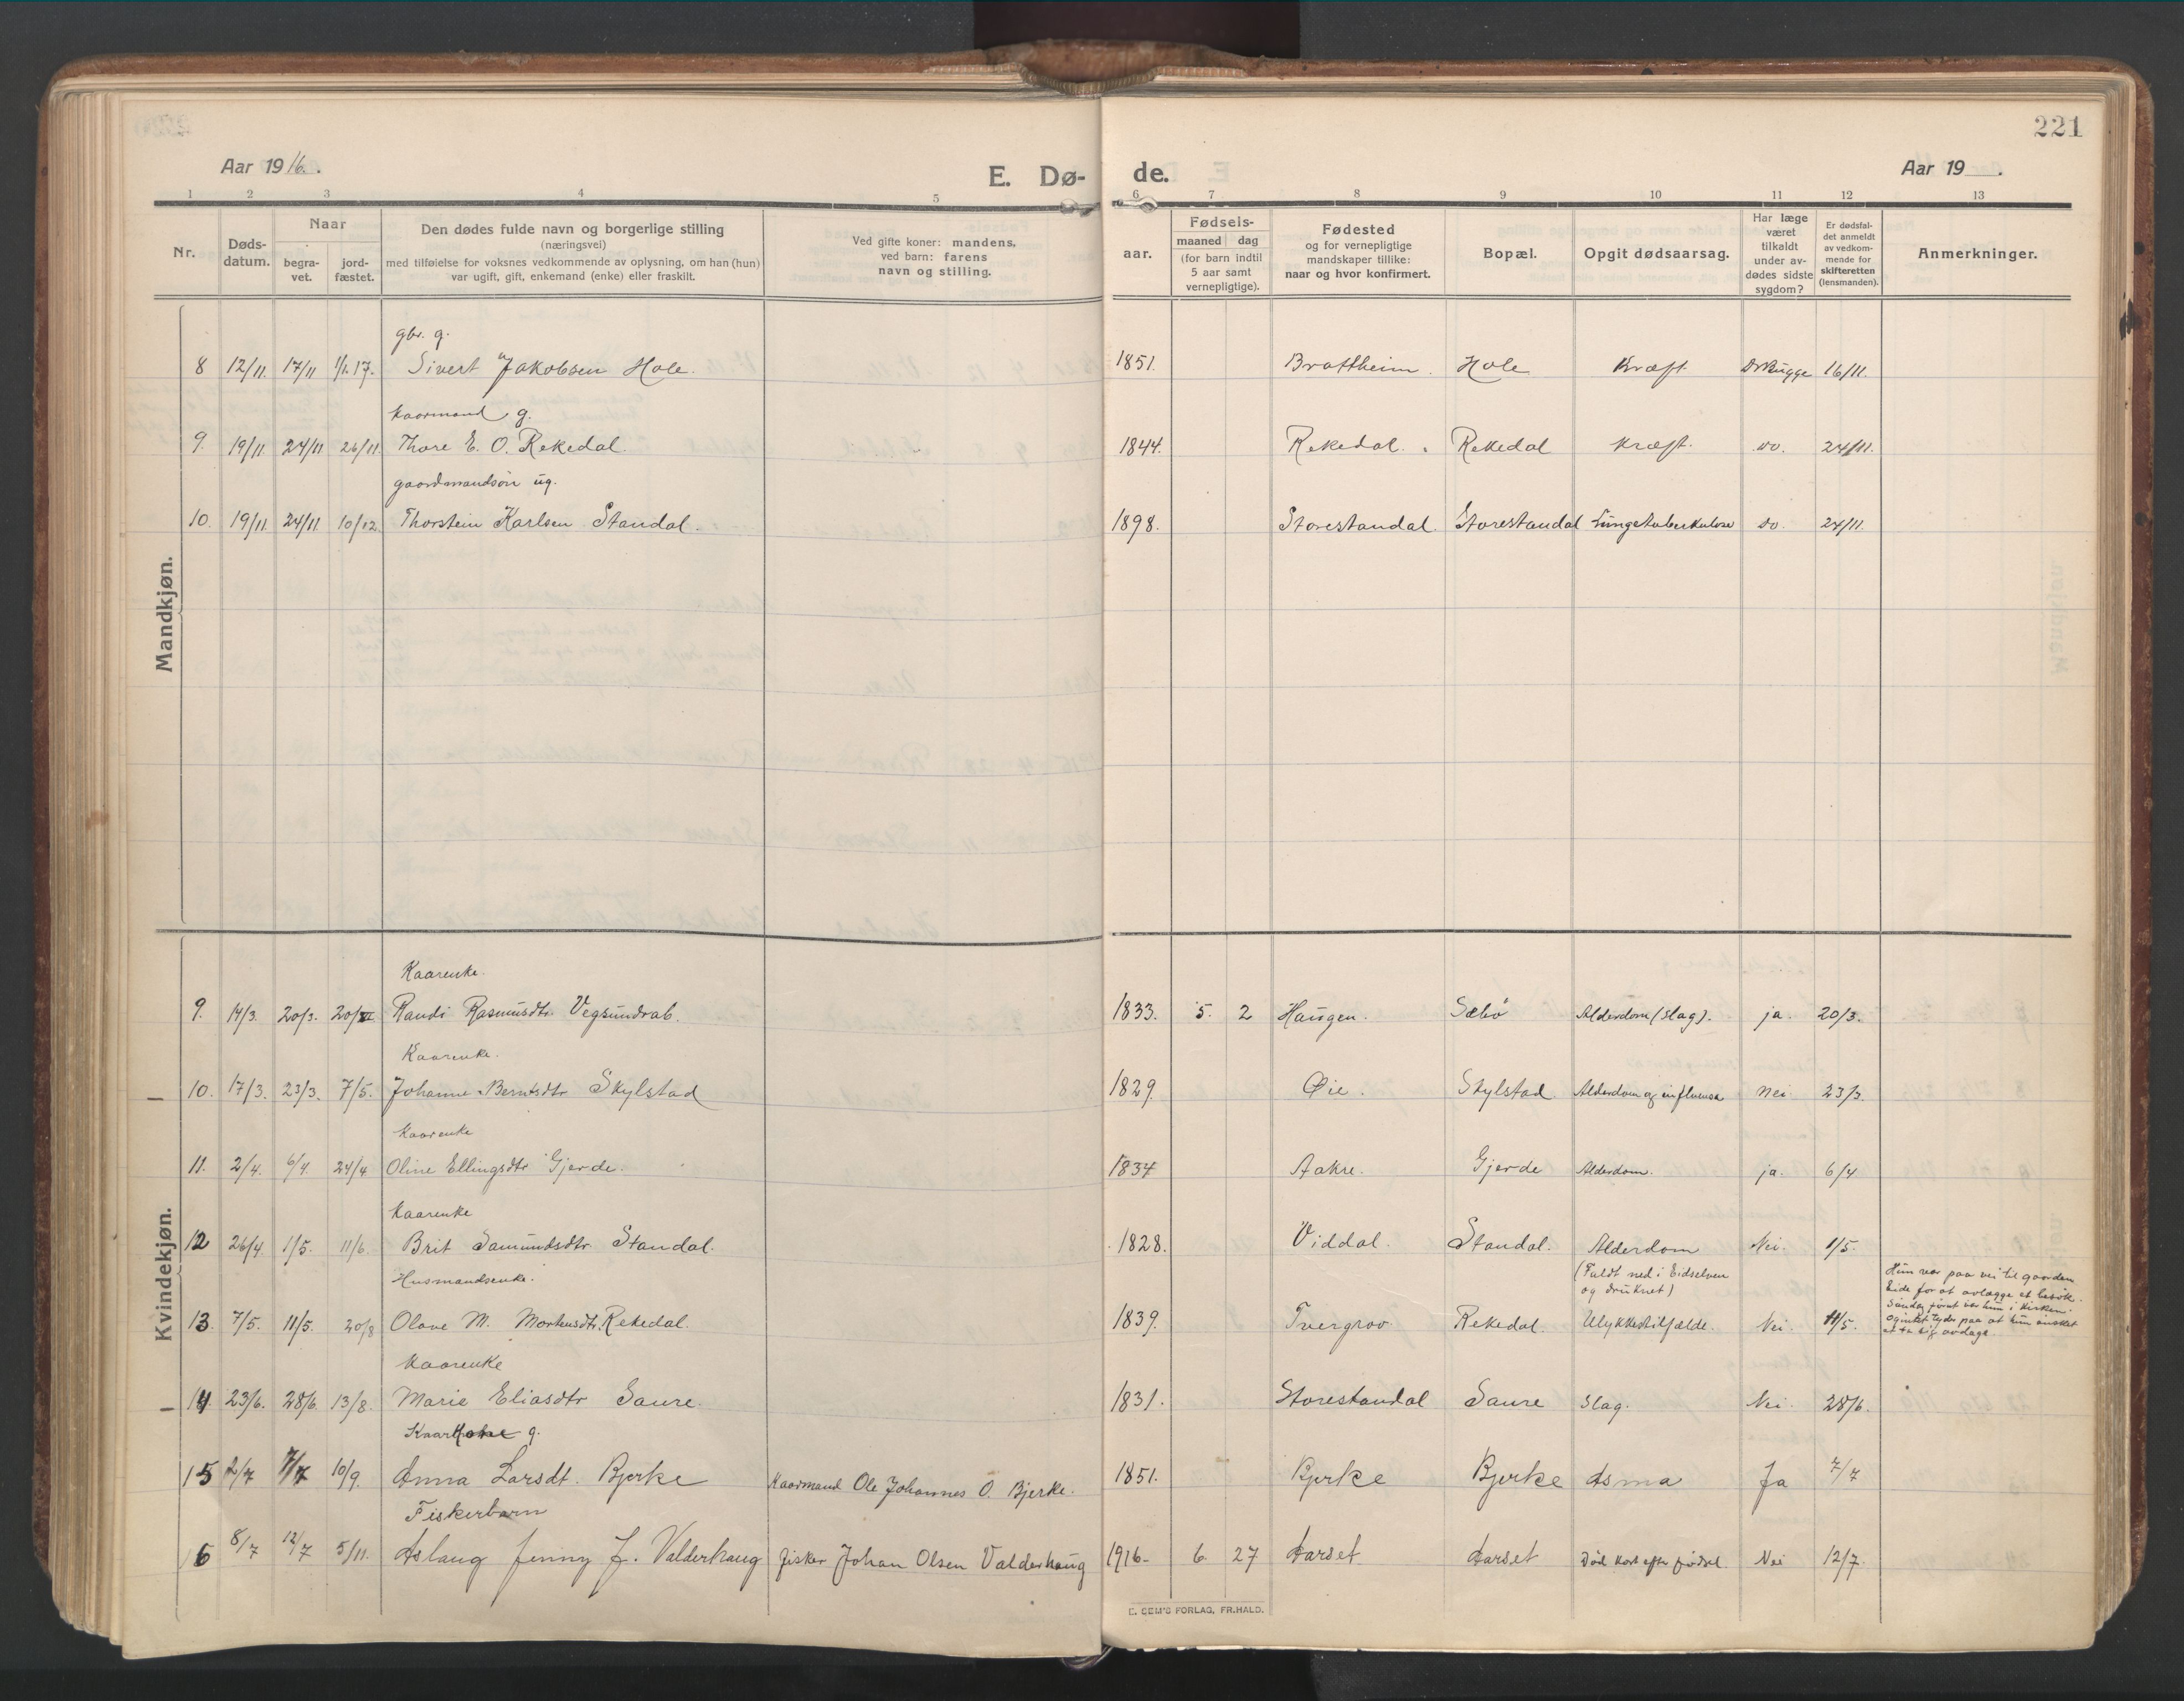 221
Aar 1916.
E. Dø-
de.
Aar 19 .
1 2 3 4 5 6 7 8 9 10 11 12 13
Nr.
Døds-
datum.
Naar
begra-
vet.
jord-
fæstet.
Den dødes fulde navn og borgerlige stilling
(næringsvei)
med tilføielse for voksnes vedkommende av oplysning, om han (hun)
var ugift, gift, enkemand (enke) eller fraskilt.
Ved gifte koner: mandens.
ved barn: farens
navn og stilling.
aar.
Fødsels-
maaned dag
(for barn indtil
5 aar samt
vernepligtige).
Fødested
og for vernepligtige
mandskaper tillike:
naar og hvor konfirmert.
Bopæl.
Opgit dødsaarsag.
Har læge
været
tilkaldt
under av-
dødes sidste
sygdom?
Er dødsfal-
det anmeldt
av vedkom-
mende for
skifteretten
(lensmanden).
Anmerkninger.
Mandkjøn.
gbr. g.
8 12/11. 17/11 1/1.17. Sivert Jakobsen Hole. 1851. Brattheim. Hole Kræft. Dr Rugge 16/11.
Kaarmand g.
9. 19/11. 24/11 26/11. Thore E. O. Rekedal. 1844. Rekedal. Rekedal Kræft. do. 24/11.
gaardmandsøn ug.
10. 19/11. 24/11. 10/12. Thorstein Karlsen Standal. 1898. Storestandal. Storestandal Lungetuberkulose do. 24/11.
Kvindekjøn.
Kaarenke.
9. 14/3. 20/3. 20/VI Randi Rasmusdtr. Vegsundrab. 1833. 5. 2 Haugen. Sæbø Alderdom (slag). ja. 20/3.
Kaarenke.
10. 17/3. 23/3. 7/5. Johanne Berntsdtr Skylstad 1829. Øie. Skylstad Alderdom og influensa nei. 23/3.
Kaarenke
11. 2/4. 6/4 24/4 Oline Ellingsdtr Gjerde. 1834 Aakre. Gjerde Alderdom. ja. 6/4
Kaarenke
12 26/4. 1/5. 11/6. Brit Samundsdtr Standal. 1828. Viddal. Standal. Alderdom Nei. 1/5.
Husmandsenke.
(Faldt ned i Eidselven
og druknet)
13. 7/5. 11/5. 20/8 Olave M. Mortensdtr. Rekedal. 1839. Tvergrov. Rekedal. Ulykkestilfælde. Nei. 11/5.
Hun var paa vei til gaarden
Eide for at avlægge et besøk.
Søndag forut var hun i kirken.
og intet tyder paa at hun ønsket
at ta sig avdage.
Kaarenke
14. 23/6. 28/6. 13/8. Marie Eliasdtr Saure. 1831. Storestandal Saure Slag. Nei. 28/6.
Kaarkone g.
15 2/7 7/7 10/9. Anna Larsdt. Bjerke Kaarmand Ole Johannes O. Bjerke. 1851. Bjerke Bjerke Asma Ja 7/7
Fiskerbarn
16 8/7 12/7 5/11. Aslaug Jenny J. Valderhaug fisker Johan Olsen Valderhaug 1916- 6. 27 Aarset Aarset Død kort efter fødsel. Nei 12/7.
E. SEM'S FORLAG, FR.HALD.